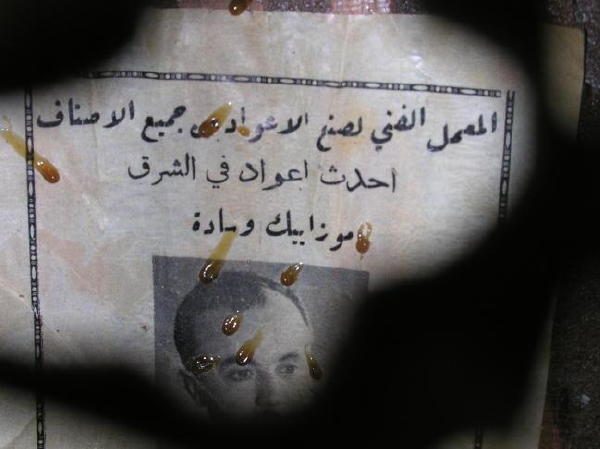 المعمل الفني لصنع الاعواد من جميع الاصناف
احدث اعواد في الشرق
موزاييك وسادة